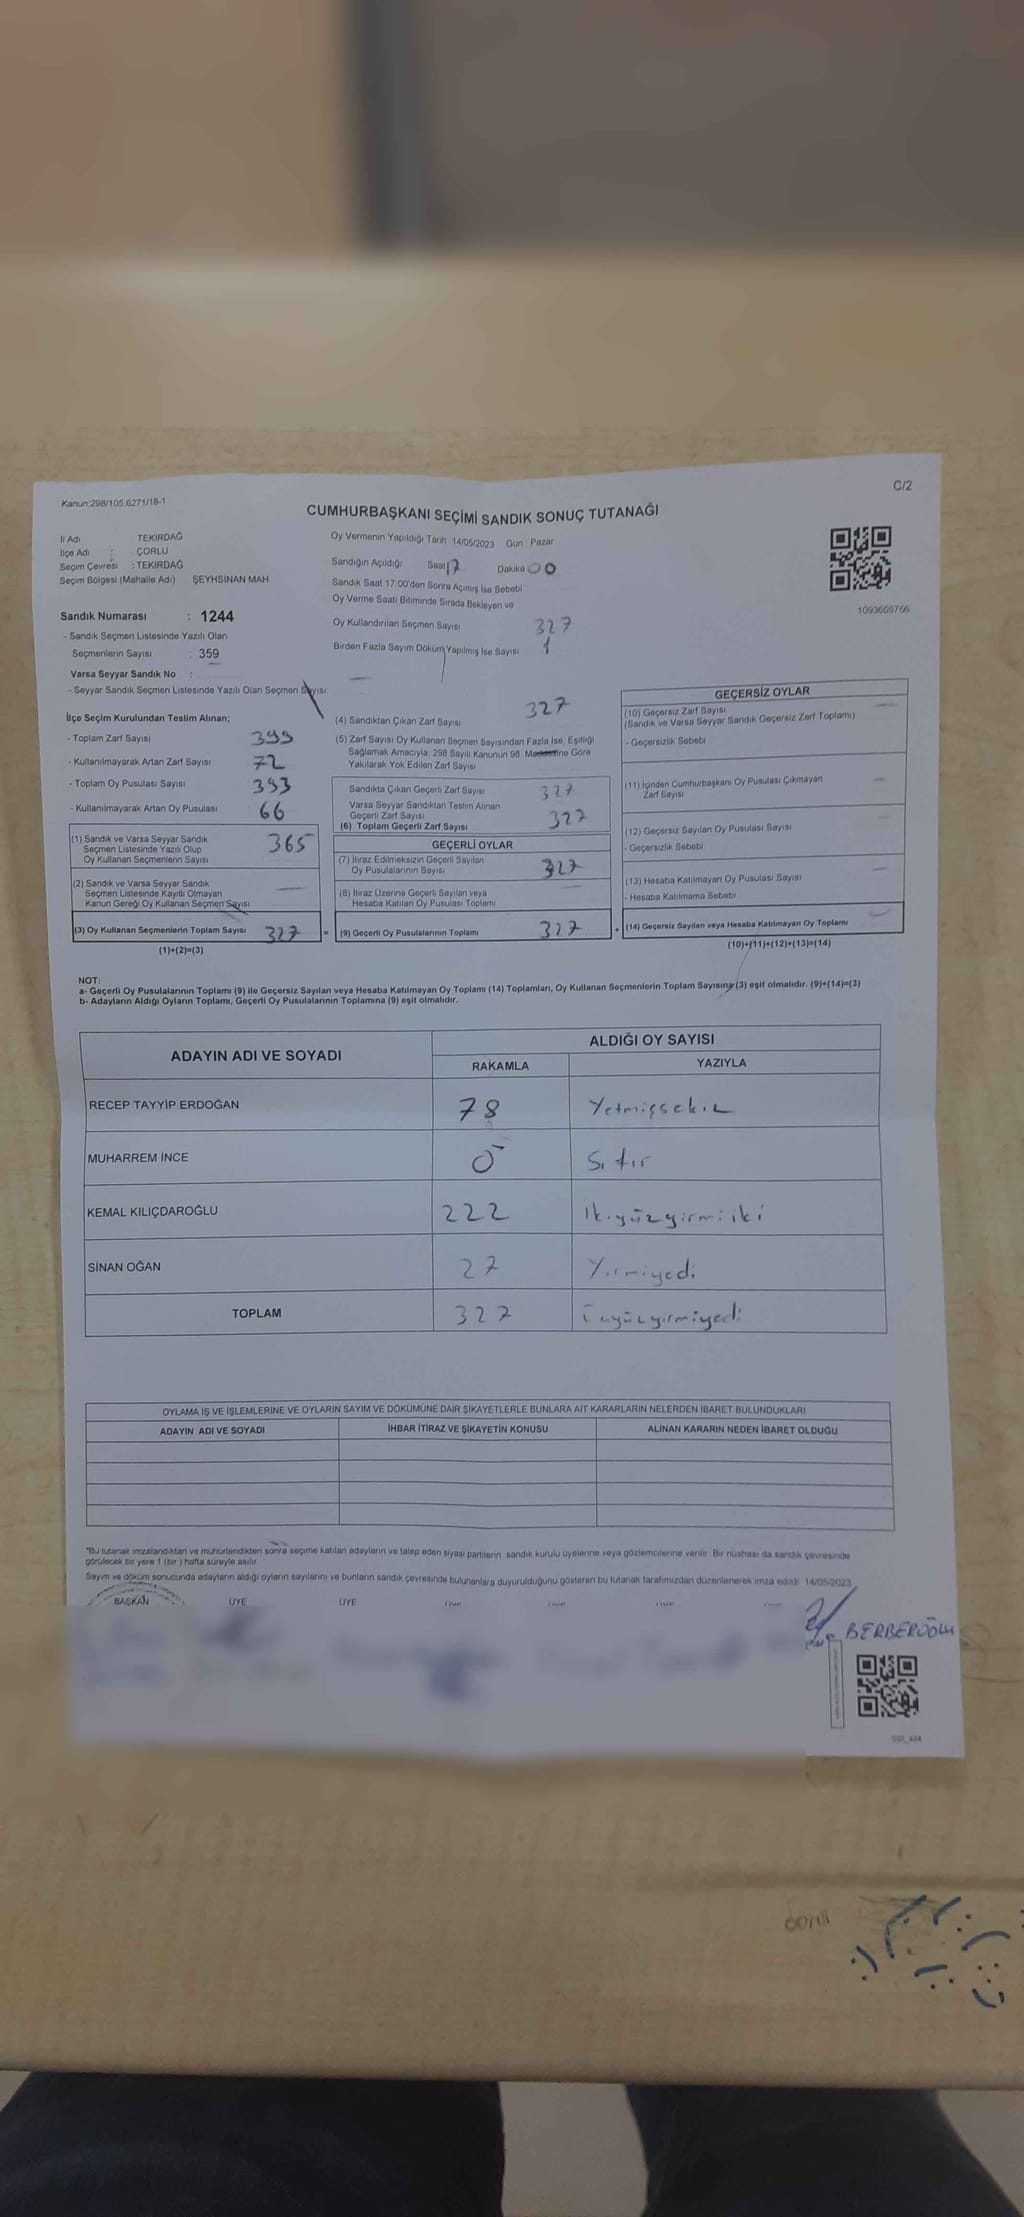 Kanun:298/105,6271/18-1
C/2
CUMHURBAŞKANI SEÇİMİ SANDIK SONUÇ TUTANAĞI
İl Adı TEKİRDAĞ
İlçe Adı : ÇORLU
Seçim Çevresi : TEKİRDAĞ
Seçim Bölgesi (Mahalle Adı) ŞEYHSİNAN MAH
Sandık Numarası : 1244
- Sandık Seçmen Listesinde Yazılı Olan
Seçmenlerin Sayısı : 359
Varsa Seyyar Sandık No :
- Seyyar Sandık Seçmen Listesinde Yazılı Olan Seçmen Sayısı
Oy Vermenin Yapıldığı Tarih 14/05/2023 Gün Pazar
Sandığın Açıldığı Saat 17 Dakika 00
Sandık Saat 17:00'den Sonra Açımış İse Sebebi
Oy Verme Saati Bitiminde Sırada Bekleyen ve
Oy Kullandırılan Seçmen Sayısı 327
Birden Fazla Sayım Döküm Yapılmış İse Sayısı 1
1093605756
İlçe Seçim Kurulundan Teslim Alınan;
- Toplam Zarf Sayısı 399
- Kullanılmayarak Artan Zarf Sayısı 72
- Toplam Oy Pusulası Sayısı 393
- Kullanılmayarak Artan Oy Pusulası 66
(1) Sandık ve Varsa Seyyar Sandık
Seçmen Listesinde Yazılı Olup
Oy Kullanan Seçmenlerin Sayısı 365
(2) Sandık ve Varsa Seyyar Sandık
Seçmen Listesinde Kayıtlı Olmayan
Kanun Gereği Oy Kullanan Seçmen Sayısı
(3) Oy Kullanan Seçmenlerin Toplam Sayısı 327 =
(1)+(2)=(3)
(4) Sandıktan Çıkan Zarf Sayısı 327
(5) Zarf Sayısı Oy Kullanan Seçmen Sayısından Fazla İse, Eşitliği
Sağlamak Amacıyla, 298 Sayılı Kanunun 98 Maddesine Göre
Yakılarak Yok Edilen Zarf Sayısı
Sandıkta Çıkan Geçerli Zarf Sayısı 327
Varsa Seyyar Sandıktan Teslim Alınan
Geçerli Zarf Sayısı 327
(6) Toplam Geçerli Zarf Sayısı
GEÇERLİ OYLAR
(7) İtiraz Edilmeksizin Geçerli Sayılan
Oy Pusulalarının Sayısı 327
(8) İtiraz Üzerine Geçerli Sayılan veya
Hesaba Katılan Oy Pusulası Toplamı
(9) Geçerli Oy Pusulalarının Toplamı 327 +
GEÇERSİZ OYLAR
(10) Geçersiz Zarf Sayısı
(Sandık ve Varsa Seyyar Sandık Geçersiz Zarf Toplamı)
- Geçersizlik Sebebi
(11) İçinden Cumhurbaşkanı Oy Pusulası Çıkmayan
Zarf Sayısı
(12) Geçersiz Sayılan Oy Pusulası Sayısı
- Geçersizlik Sebebi
(13) Hesaba Katılmayan Oy Pusulası Sayısı
- Hesaba Katılmama Sebebi
(14) Geçersiz Sayılan veya Hesaba Katılmayan Oy Toplamı
(10)+(11)+(12)+(13)=(14)
NOT:
a- Geçerli Oy Pusulalarının Toplamı (9) ile Geçersiz Sayılan veya Hesaba Katılmayan Oy Toplamı (14) Toplamları, Oy Kullanan Seçmenlerin Toplam Sayısına (3) eşit olmalıdır. (9)+(14)=(3)
b- Adayların Aldığı Oyların Toplamı, Geçerli Oy Pusulalarının Toplamına (9) eşit olmalıdır.
ADAYIN ADI VE SOYADI ALDIĞI OY SAYISI
RAKAMLA YAZIYLA
RECEP TAYYİP ERDOĞAN 78 Yetmişsekiz
MUHARREM İNCE 0 Sıfır
KEMAL KILIÇDAROĞLU 222 İkiyüzyirmiiki
SİNAN OĞAN 27 Yirmiyedi
TOPLAM 327 Üçyüzyirmiyedi
OYLAMA İŞ VE İŞLEMLERİNE VE OYLARIN SAYIM VE DÖKÜMÜNE DAİR ŞİKAYETLERLE BUNLARA AİT KARARLARIN NELERDEN İBARET BULUNDUKLARI
ADAYIN ADI VE SOYADI İHBAR İTİRAZ VE ŞİKAYETİN KONUSU ALINAN KARARIN NEDEN İBARET OLDUĞU
*Bu tutanak imzalandıktan ve mühürlendikten sonra seçime katılan adayların ve talep eden siyasi partilerin sandık kurulu üyelerine veya gözlemcilerine verilir. Bir nüshası da sandık çevresinde
görülecek bir yere 1 (bir ) hafta süreyle asılır.
Sayım ve döküm sonucunda adayların aldığı oyların sayılarını ve bunların sandık çevresinde bulunanlara duyurulduğunu gösteren bu tutanak tarafımızdan düzenlenerek imza edildi. 14/05/2023
BAŞKAN ÜYE ÜYE
BERBEROĞLU